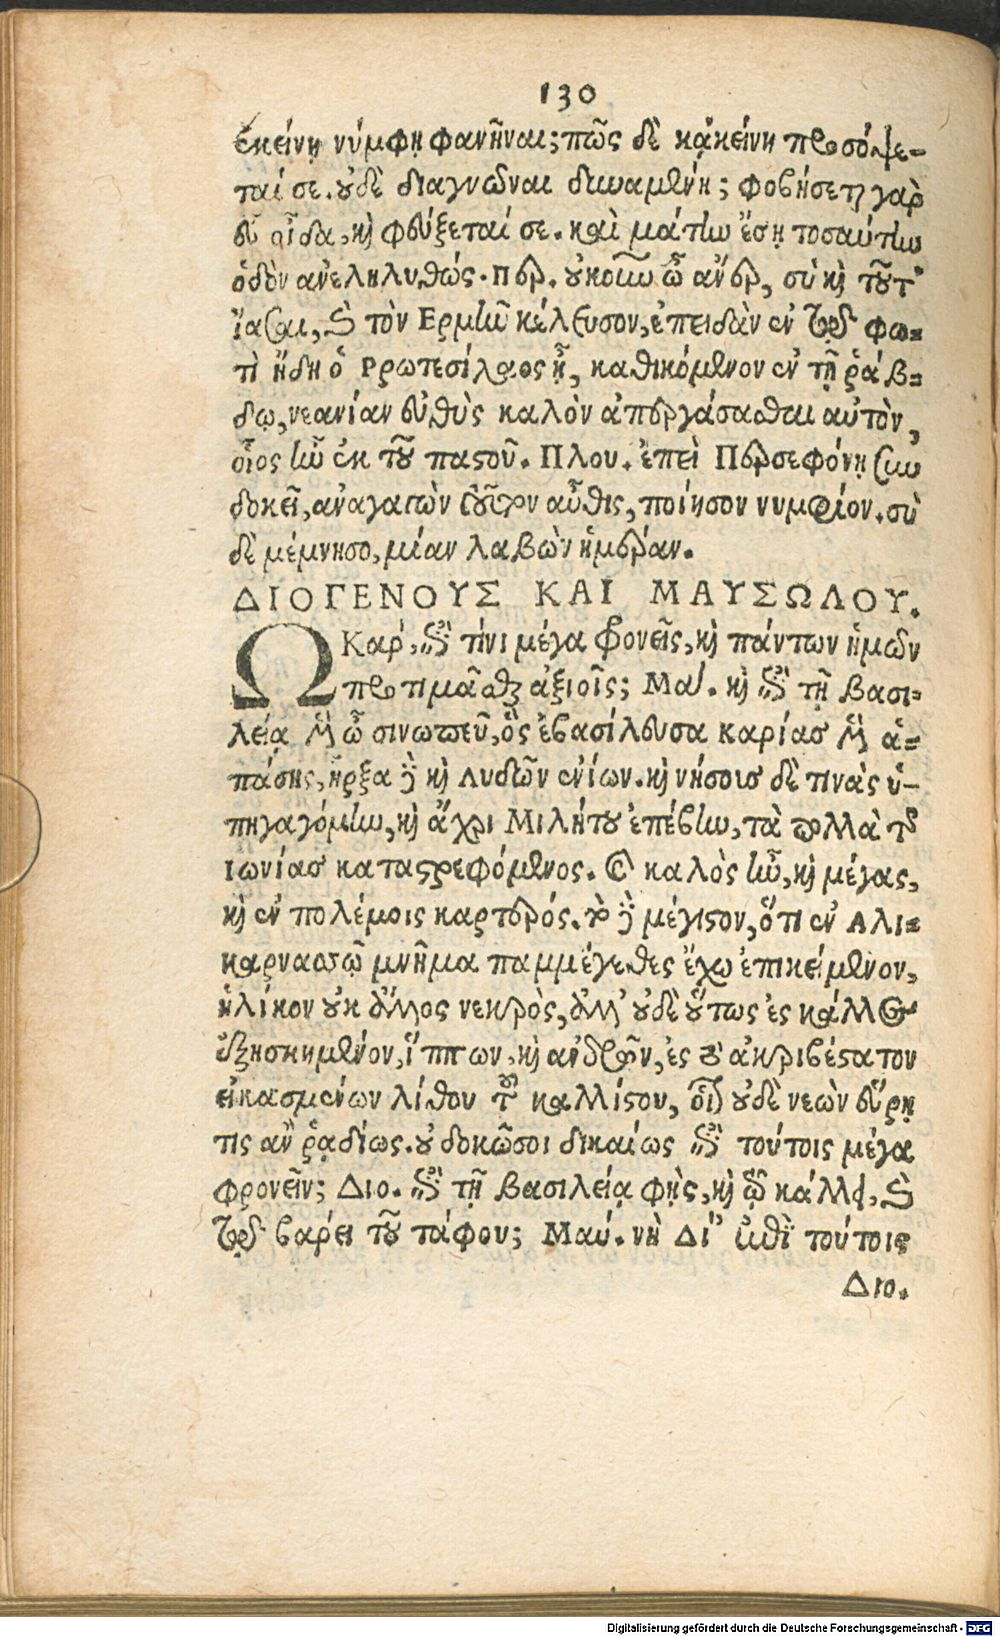 130
ἐκείνῃ νύμφῃ φανῆναι; πῶς δὲ κᾀκείνη προσόψε-
ταί σε. οὐδὲ διαγνῶναι δυναμένη; φοβήσεται γὰρ
εὖ οἶδα, καὶ φεύξεταί σε. καὶ μάτην ἔσῃ τοσαύτην
ὁδὸν ἀνεληλυθώς. Περ. οὐκοῦν ὦ ἄνερ, σὺ καὶ τοῦτ'
ἴασαι, καὶ τὸν Ερμῆν κέλευσον, ἐπειδὰν ἐν τῷ φω-
τὶ ἤδη ὁ Πρωτεσίλαος ᾖ, καθικόμενον ἐν τῇ ῥάβ-
δῳ, νεανίαν εὐθὺς καλὸν ἀπεργάσασθαι αὐτὸν,
οἷος ἦν ἐκ τοῦ παστοῦ. Πλου. ἐπεὶ Περσεφόνῃ συν
δοκεῖ, ἀναγαγὼν τοῦτον αὖθις, ποίησον νυμφίον. σὺ
δὲ μέμνησο, μίαν λαβὼν ἡμέραν.
ΔΙΟΓΕΝΟΥΣ ΚΑΙ ΜΑΥΣΩΛΟΥ.
Ω Καρ, ἐπὶ τίνι μέγα φρονεῖς, καὶ πάντων ἡμῶν
προτιμᾶσθαι ἀξιοῖς; Μαύ. καὶ ἐπὶ τῇ βασι-
λείᾳ μὲν ὦ σινωπεῦ, ὃς ἐβασίλευσα καρίας μὲν ἁ-
πάσης, ἦρξα δὲ καὶ λυδῶν ἐνίων. καὶ νήσους δὲ τινὰς ὑ-
πηγαγόμην, καὶ ἄχρι Μιλήτου ἐπέβην, τὰ πολλὰ τῆς
Ιωνίας καταστρεφόμενος. καὶ καλὸς ἦν, καὶ μέγας,
καὶ ἐν πολέμοις καρτερός. τὸ δὲ μέγιστον, ὅτι ἐν Αλι-
καρνασσῷ μνῆμα παμμέγεθες ἔχω ἐπικείμενον,
ἡλίκον οὐκ ἄλλος νεκρὸς, ἀλλ' οὐδὲ οὕτως ἐς κάλλος
ἐξησκημένον, ἵππων, καὶ ἀνδρῶν, ἐς τὸ ἀκριβέστατον
εἰκασμένων λίθου τοῦ καλλίστου, οἷον οὐδὲ νεὼν εὕρῃ
τις ἂν ῥᾳδίως. οὐ δοκῶ σοι δικαίως ἐπὶ τούτοις μέγα
φρονεῖν; Διο. ἐπὶ τῇ βασιλείᾳ φῂς, καὶ τῷ κάλλει, καὶ
τῷ βάρει τοῦ τάφου; Μαύ. νὴ Δί' ἐπὶ τούτοις
Διο.
Digitalisierung gefördert durch die Deutsche Forschungsgemeinschaft - DFG